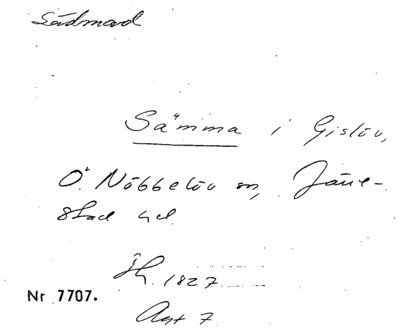 Lädmad
Sämma i Gislöv,
Ö. Nöbbelöv sn, Järre-
stad hd
Jh. 1827
Nr 7707.
Ant 7